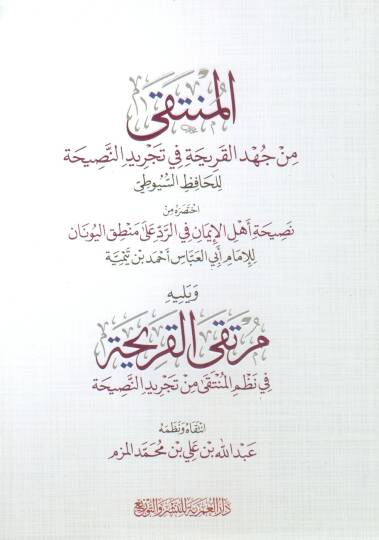 المنتقى
مِنْ جُهْدِ القَرِيحَةِ فِي تَجْرِيدِ النَّصِيحَة
لِلحَافِظِ السُّيُوطِيّ
اختَصَرَهُ مِنْ
نَصِيحَةِ أَهْلِ الإِيمَانِ فِي الرَّدِّ عَلَى مَنْطِقِ اليُونَان
لِلإِمَامِ أَبِي العَبَّاسِ أَحْمَد بْن تَيْمِيَّة
وَيَلِيهِ
مُرْتَقَى القَرِيحَةِ
فِي نَظْمِ المُنْتَقَى مِنْ تَجْرِيدِ النَّصِيحَة
انتَقَاهُ وَنَظَمَهُ
عَبدالله بن عَلي بن مُحَمَّد المزم
دار العمرية للنشر والتوزيع